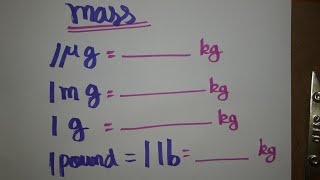 mass
1 μg = ______ kg
1 mg = ______ kg
1 g = ______ kg
1 pound = 1 lb = ______ kg